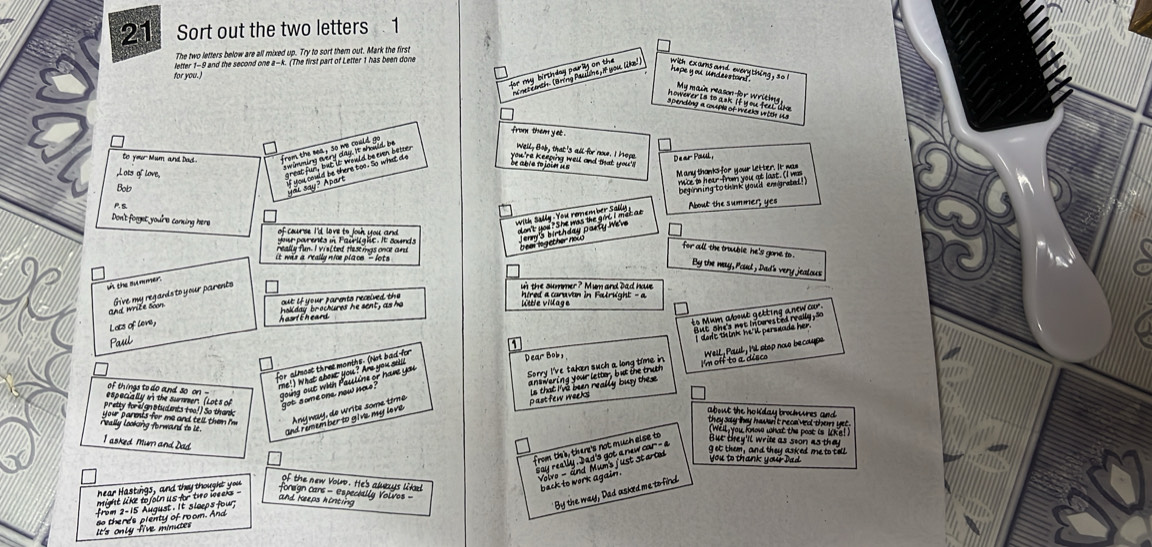 21 Sort out the two letters 1
The two letters below are all mixed up. Try to sort them out. Mark the first
letter 1–9 and the second one a–k. (The first part of Letter 1 has been done
for you.)
to your Mum and Dad.
Lots of love,
Bob
P.S.
Don't forget, you're coming here
from the sea, so we could go
swimming every day. It should be
great fun, but it would be even better
if you could be there too. So what do
you say? Apart
of course I'd love to join you and
your parents in Fairlight. It sounds
really fun. I visited Hastings once and
it was a really nice place – lots
in the summer.
Give my regards to your parents
and write soon.
Lots of love,
Paul
out if your parents received the
holiday brochures he sent, as he
hasn't heard
of things to do and so on –
especially in the summer. (Lots of
pretty foreign students too!) So thank
your parents for me and tell them I'm
really looking forward to it.
I asked Mum and Dad
for almost three months. (Not bad for
me!) What about you? Are you still
going out with Pauline or have you
got someone new now?
Anyway, do write some time
and remember to give my love
near Hastings, and they thought you
might like to join us for two weeks –
from 2–15 August. It sleeps four,
so there's plenty of room. And
it's only five minutes
of the new Volvo. He's always liked
foreign cars – especially Volvos –
and keeps hinting
for my birthday party on the
nineteenth. (Bring Pauline, if you like!)
with exams and everything, so I
hope you understand.
My main reason for writing,
however is to ask if you feel like
spending a couple of weeks with us
from them yet.
Well, Bob, that's all for now. I hope
you're keeping well and that you'll
be able to join us
Dear Paul,
Many thanks for your letter. It was
nice to hear from you at last. (I was
beginning to think you'd emigrated!)
About the summer, yes
with Sally. You remember Sally,
don't you? She was the girl I met at
Jenny's birthday party. We've
been together now
for all the trouble he's gone to.
By the way, Paul, Dad's very jealous
in the summer? Mum and Dad have
hired a caravan in Fairlight – a
little village
to Mum about getting a new car.
But she's not interested really, so
I don't think he'll persuade her.
Well, Paul, I'll stop now because
I'm off to a disco
1
Dear Bob,
Sorry I've taken such a long time in
answering your letter, but the truth
is that I've been really busy these
past few weeks
about the holiday brochures and
they say they haven't received them yet.
(Well, you know what the post is like!)
But they'll write as soon as they
get them, and they asked me to tell
you to thank your Dad
from this, there's not much else to
say really. Dad's got a new car – a
Volvo – and Mum's just started
back to work again.
By the way, Dad asked me to find